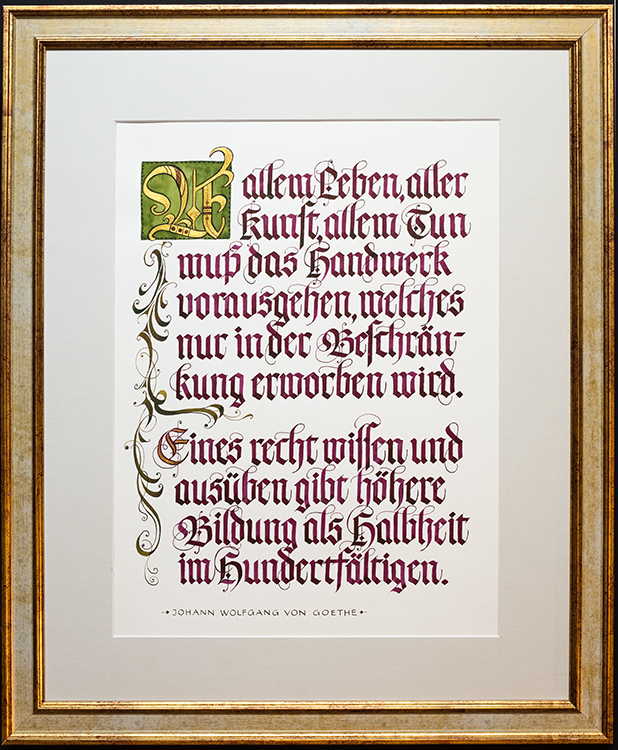 allem Leben, aller
Kunst, allem Tun
muß das Handwerk
vorausgehen, welches
nur in der Beschrän-
kung erworben wird.
Eines recht wissen und
ausüben gibt höhere
Bildung als Halbheit
im Hundertfältigen.
JOHANN WOLFGANG VON GOETHE